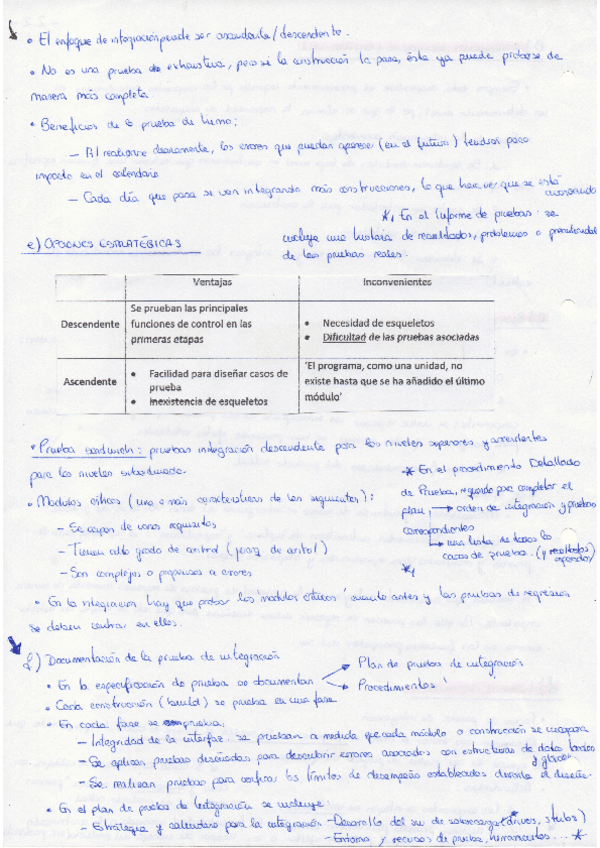 • El enfoque de integración puede ser ascendente/descendente.
• No es una prueba exhaustiva, pero si la construcción la pasa, ésta ya puede probarse de
manera más completa
• Beneficios de la prueba de humo:
– Al realizarse diariamente, los errores que puedan aparecer (en el futuro) tendrán poco
impacto en el calendario
– Cada día que pasa se van integrando más construcciones, lo que hace ver que se está
avanzando
*1 En el Informe de pruebas se
incluye una historia de resultados, problemas o
de las pruebas reales.
e) OPCIONES ESTRATÉGICAS
Ventajas Inconvenientes
Descendente
Se prueban las principales
funciones de control en las
primeras etapas
• Necesidad de esqueletos
• Dificultad de las pruebas asociadas
Ascendente
• Facilidad para diseñar casos de
prueba
• Inexistencia de esqueletos
'El programa, como una unidad, no
existe hasta que se ha añadido el último
módulo'
• Prueba sandwich: pruebas integración descendente para los niveles superiores y ascendentes
para los niveles subordinados.
• Módulos críticos (una o más características de las siguientes):
– Se ocupan de varios requisitos
– Tienen alto grado de control ( de control)
– Son complejos o propensos a errores
* En el procedimiento Detallado
de Prueba, requerido para completar el
plan, → orden de integración y pruebas
correspondientes
→ una lista de todos los
casos de prueba (y resultados
esperados)
*1
• En la integración hay que probar los 'módulos críticos' cuanto antes y las pruebas de regresión
se deben centrar en ellos.
f) Documentación de la prueba de integración
• En la especificación de prueba se documentan → Plan de pruebas de integración
→ Procedimientos '
• Cada construcción (build) se prueba en una fase
• En cada fase se comprueba:
– Integridad de la interfaz: se prueban a medida que cada módulo o construcción se incorpora
– Se aplican pruebas diseñadas para descubrir errores asociados con estructuras de datos locales
y globales
– Se realizan pruebas para verificar los límites de desempeño establecidos durante el diseño
• En el plan de prueba de integración se incluye:
– Estrategia y calendario para la integración – Desarrollo del sw de sobrecarga (drivers, stubs)
– Entorno y recursos de prueba, herramientas... *